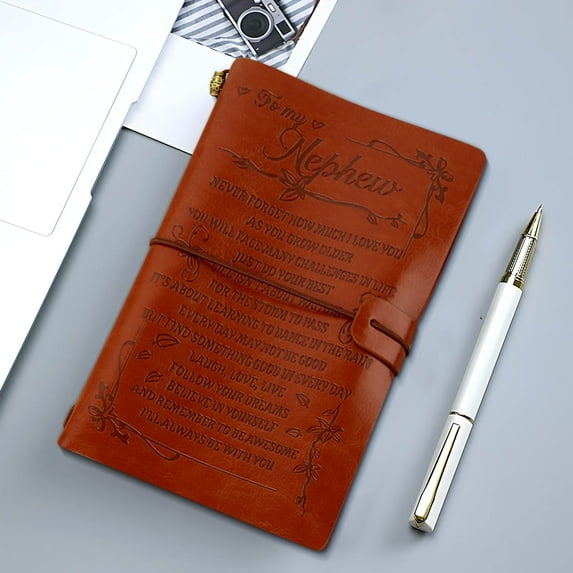 To my
Nephew
NEVER FORGET HOW MUCH I LOVE YOU
AS YOU GROW OLDER
YOU WILL FACE MANY CHALLENGES IN LIFE
JUST DO YOUR BEST
LIFE ISN'T ABOUT WAITING
FOR THE STORM TO PASS
IT'S ABOUT LEARNING TO DANCE IN THE RAIN
EVERY DAY MAY NOT BE GOOD
BUT FIND SOMETHING GOOD IN EVERY DAY
LAUGH, LOVE, LIVE
FOLLOW YOUR DREAMS
BELIEVE IN YOURSELF
AND REMEMBER TO BE AWESOME
I'LL ALWAYS BE WITH YOU